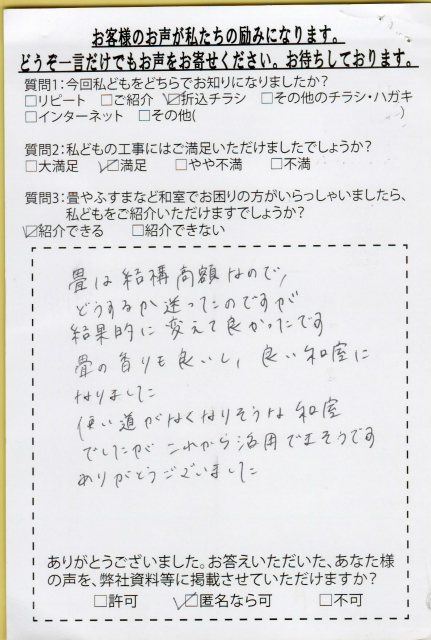 お客様のお声が私たちの励みになります。
どうぞ一言だけでもお声をお寄せください。お待ちしております。
質問1：今回私どもをどちらでお知りになりましたか？
□リピート □ご紹介 ☑折込チラシ □その他のチラシ・ハガキ
□インターネット □その他( )
質問2：私どもの工事にはご満足いただけましたでしょうか？
□大満足 ☑満足 □やや不満 □不満
質問3：畳やふすまなど和室でお困りの方がいらっしゃいましたら、
私どもをご紹介いただけますでしょうか？
☑紹介できる □紹介できない
畳は結構高額なので、
どうするか迷ったのですが
結果的に変えて良かったです
畳の香りも良いし、良い和室に
なりました
使い道がなくなりそうな和室
でしたが これから活用できそうです
ありがとうございました
ありがとうございました。お答えいただいた、あなた様
の声を、弊社資料等に掲載させていただけますか？
□許可 ☑匿名なら可 □不可